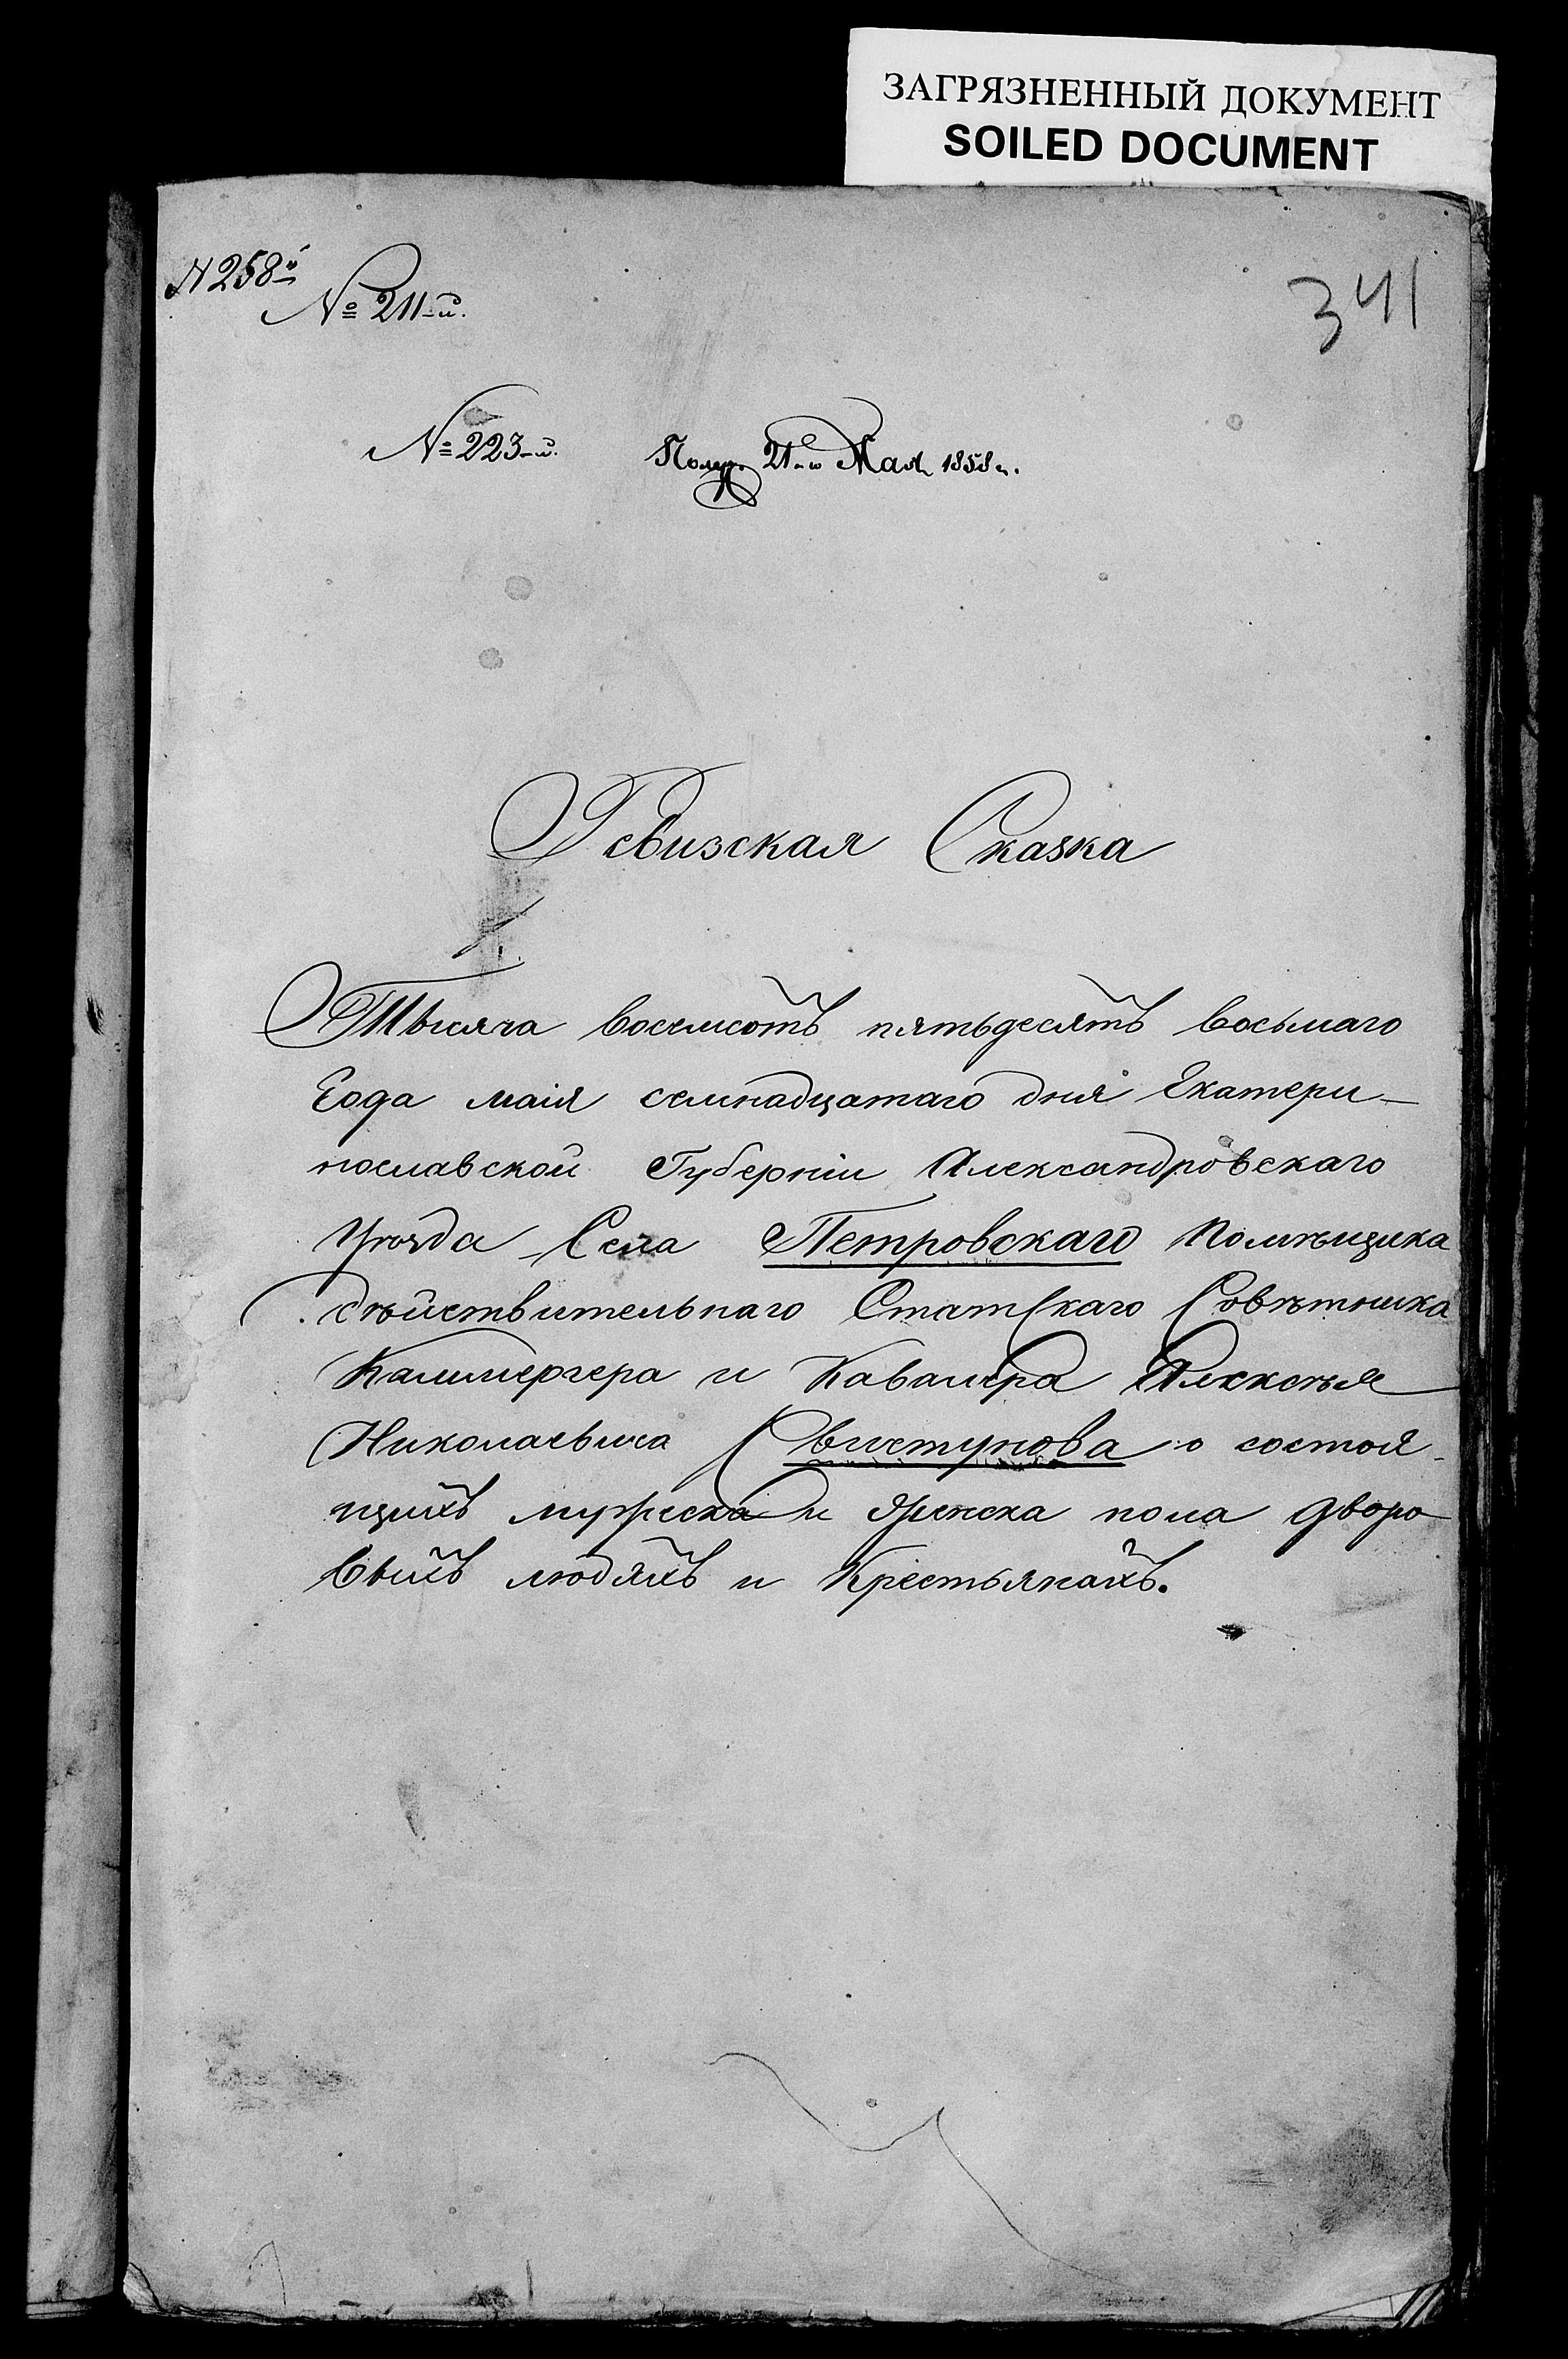 ЗАГРЯЗНЕННЫЙ ДОКУМЕНТ
SOILED DOCUMENT
N 258й
№ 211-й.
341
№ 223-й. Получ. 21-го Мая 1858 г.
Ревизская Сказка
Тысяча восемсотъ пятьдесятъ восьмаго
Года маія семнадцатаго дня Екатери-
нославской Губерніи Александровскаго
Уѣзда Села Петровскаго Помѣщика
дѣйствительнаго Статскаго Совѣтника
Каммергера и Кавалера Алексѣя
Николаевича Свистунова о состоя-
щихъ мужеска и женска пола дворо
выхъ людяхъ и Крестьянахъ.